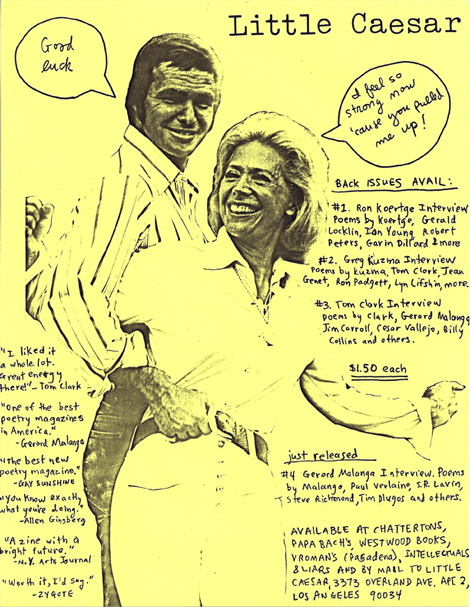 Little Caesar
Good
luck
I feel so
strong now
'cause you pulled
me up!
BACK ISSUES AVAIL:
#1. Ron Koertge Interview
Poems by Koertge, Gerald
Locklin, Ian Young, Robert
Peters, Gavin Dillard & more
#2. Greg Kuzma Interview
Poems by Kuzma, Tom Clark, Jean
Genet, Ron Padgett, Lyn Lifshin, more.
#3. Tom Clark Interview
poems by Clark, Gerard Malanga
Jim Carroll, Cesar Vallejo, Billy
Collins and others.
$1.50 each
"I liked it
a whole lot.
Great energy
there!" - Tom Clark
"One of the best
poetry magazines
in America."
- Gerard Malanga
"The best new
poetry magazine."
- GAY SUNSHINE
"You know exactly
what you're doing."
- Allen Ginsberg
"A zine with a
bright future."
- N.Y. Arts Journal
"Worth it, I'd say."
- ZYGOTE
just released
#4 Gerard Malanga Interview. Poems
by Malanga, Paul Verlaine, S.R. Lavin,
Steve Richmond, Tim Dlugos and others.
AVAILABLE AT CHATTERTONS,
PAPA BACH'S, WESTWOOD BOOKS,
VROMAN'S (Pasadena), INTELLECTUALS
& LIARS AND BY MAIL TO LITTLE
CAESAR, 3373 OVERLAND AVE. APT 2,
LOS ANGELES 90034